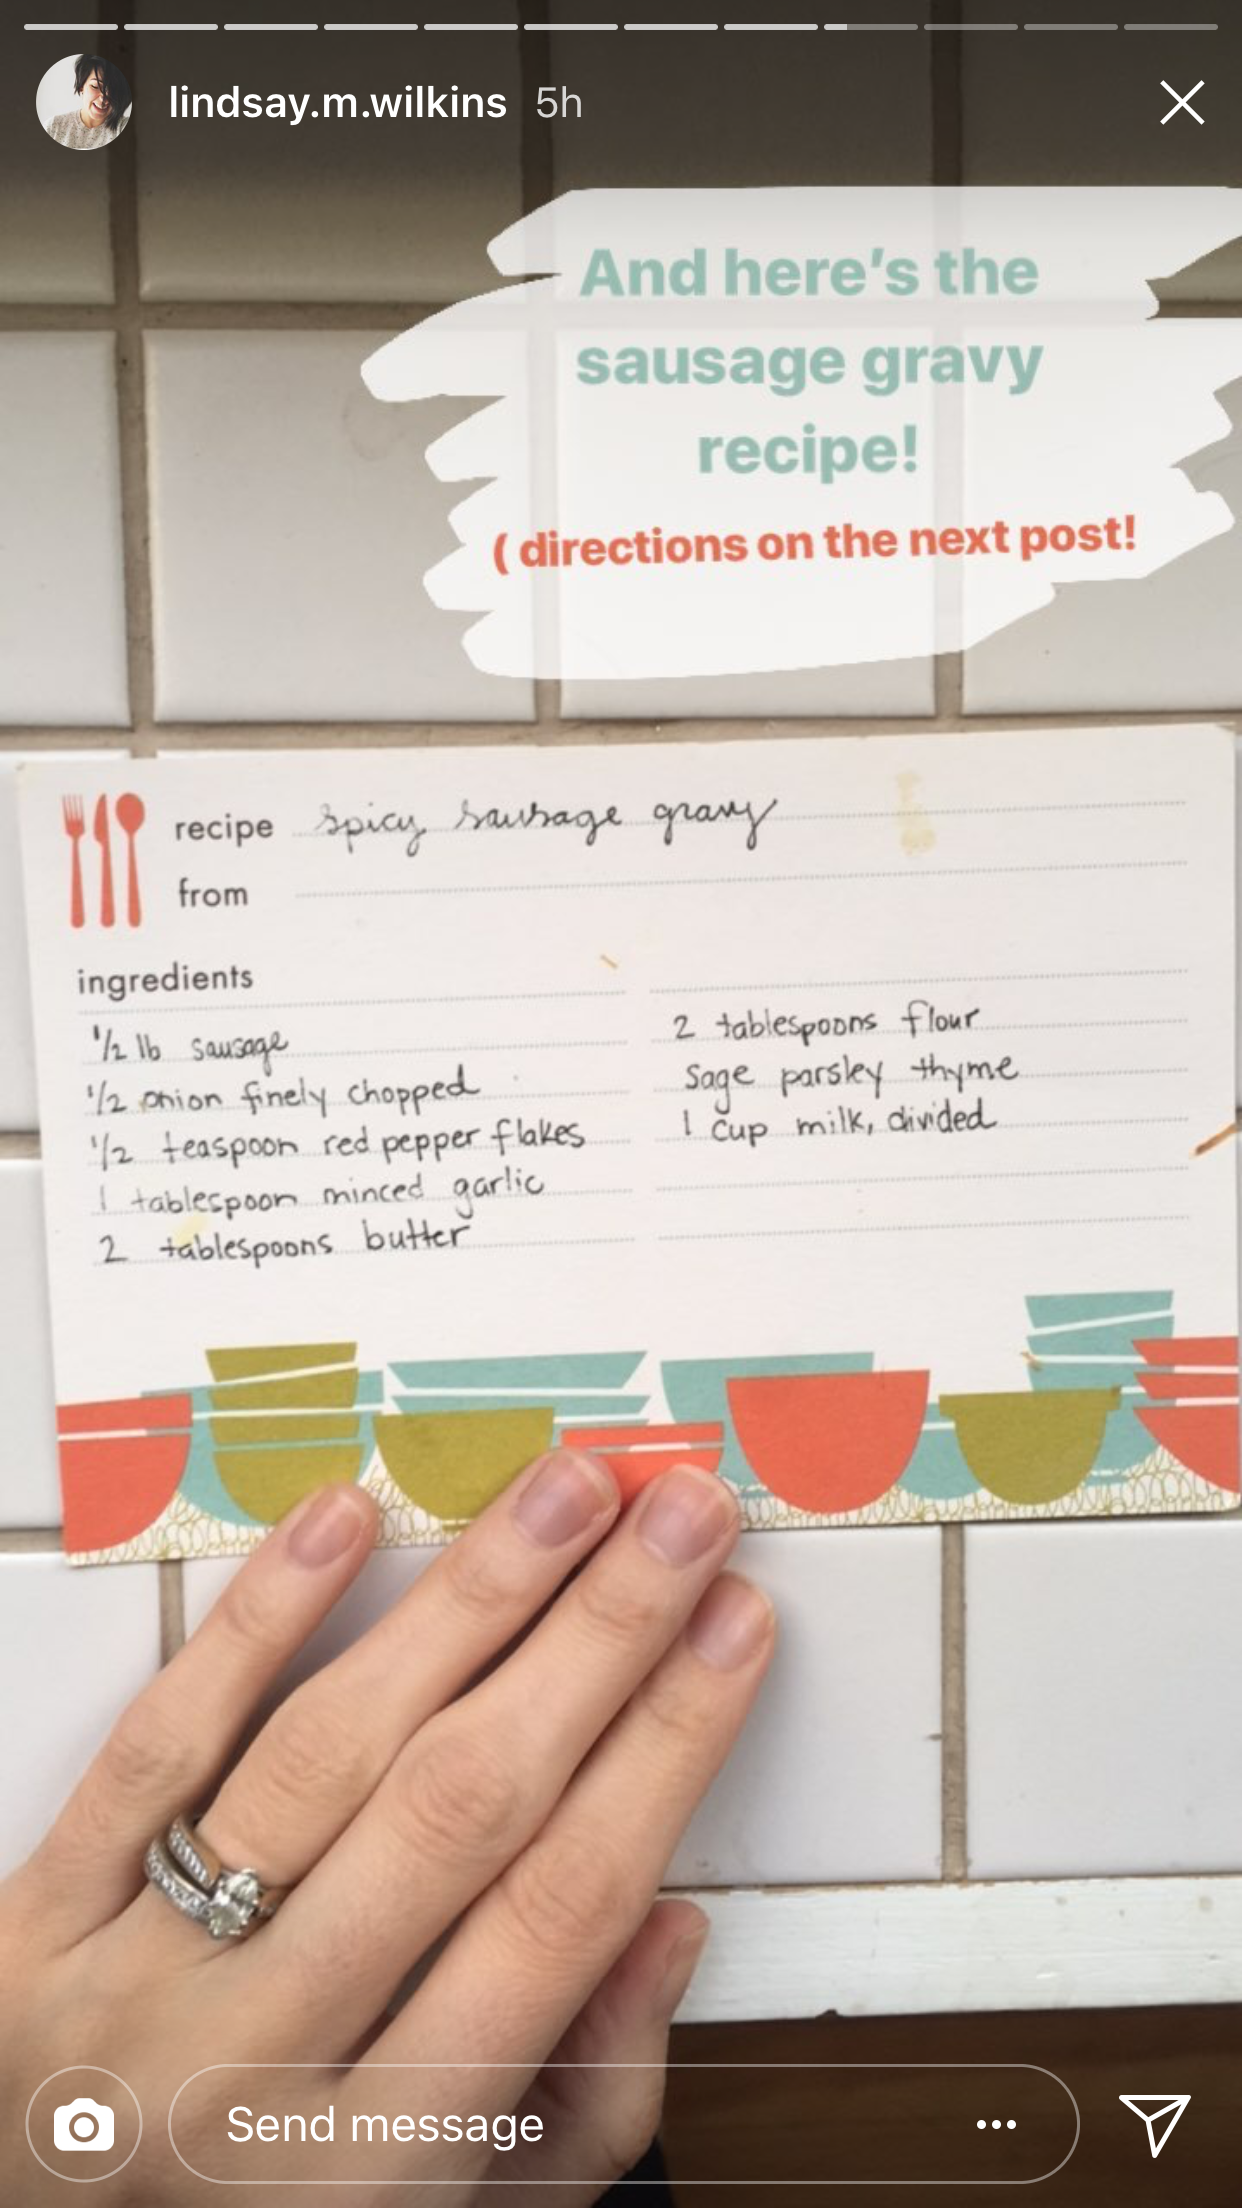 lindsay.m.wilkins 5h
And here's the
sausage gravy
recipe!
( directions on the next post!
recipe spicy sausage gravy
from
ingredients
1/2 lb sausage
1/2 onion finely chopped
1/2 teaspoon red pepper flakes
1 tablespoon minced garlic
2 tablespoons butter
2 tablespoons flour
sage parsley thyme
1 cup milk, divided
Send message